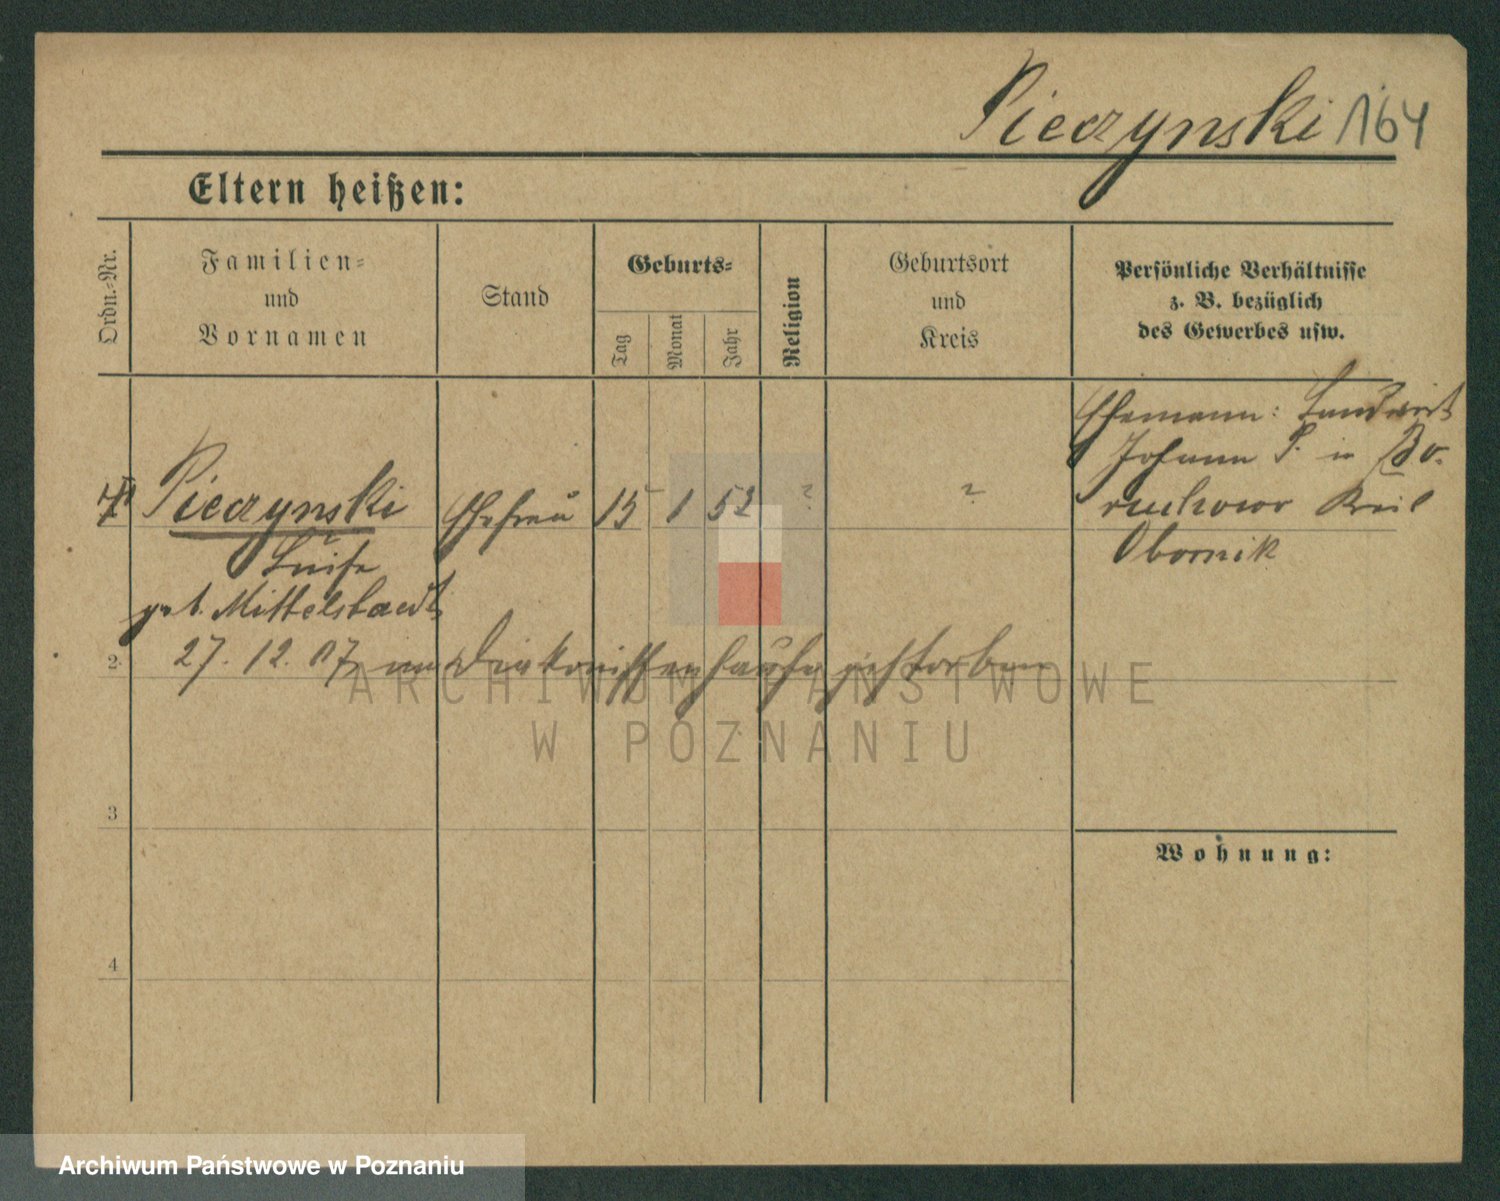 Pieczynski 164
Eltern heißen:
Ordn.-Nr.
Familien-
und
Vornamen
Stand
Geburts-
Tag
Monat
Jahr
Religion
Geburtsort
und
Kreis
Persönliche Verhältnisse
z. B. bezüglich
des Gewerbes usw.
Ehemann: Landwirt
Johann P. in Bo-
ruchowo Kreis
Obornik
Pieczynski Ehefrau 15 1 52 ? ?
Luise
geb. Mittelstaedt
2 27. 12. 07 im Diakonissenhause gestorben
ARCHIWUM PAŃSTWOWE
W POZNANIU
3
Wohnung:
4
Archiwum Państwowe w Poznaniu